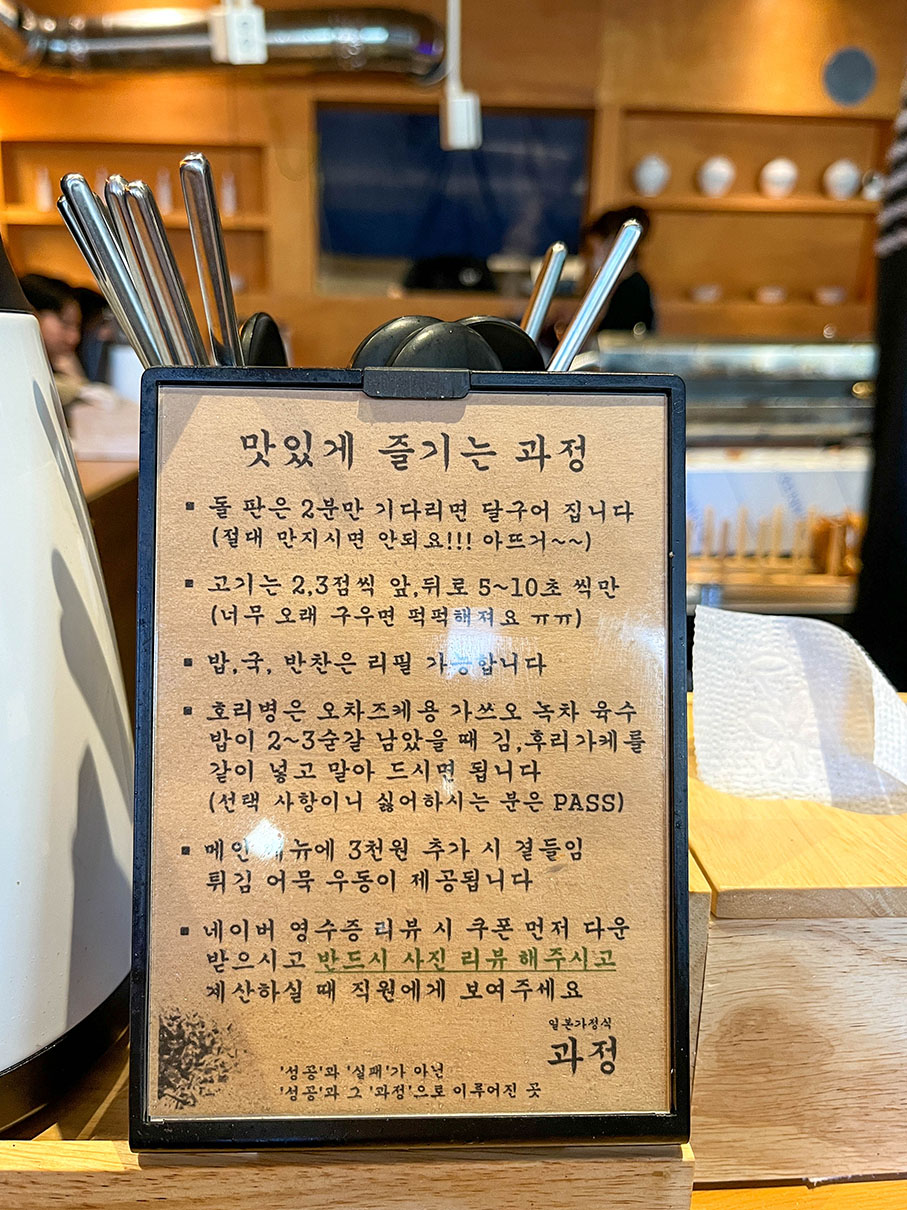 맛있게 즐기는 과정
▪ 돌 판은 2분만 기다리면 달구어 집니다
(절대 만지시면 안되요!!! 아뜨거~~)
▪ 고기는 2,3점씩 앞,뒤로 5~10초 씩만
(너무 오래 구우면 퍽퍽해져요 ㅠㅠ)
▪ 밥,국, 반찬은 리필 가능합니다
▪ 호리병은 오차즈케용 가쓰오 녹차 육수
밥이 2~3숟갈 남았을 때 김,후리가케를
같이 넣고 말아 드시면 됩니다
(선택 사항이니 싫어하시는 분은 PASS)
▪ 메인 메뉴에 3천원 추가 시 곁들임
튀김 어묵 우동이 제공됩니다
▪ 네이버 영수증 리뷰 시 쿠폰 먼저 다운
받으시고 반드시 사진 리뷰 해주시고
계산하실 때 직원에게 보여주세요
일본가정식
과정
'성공'과 '실패'가 아닌
'성공'과 그 '과정'으로 이루어진 곳